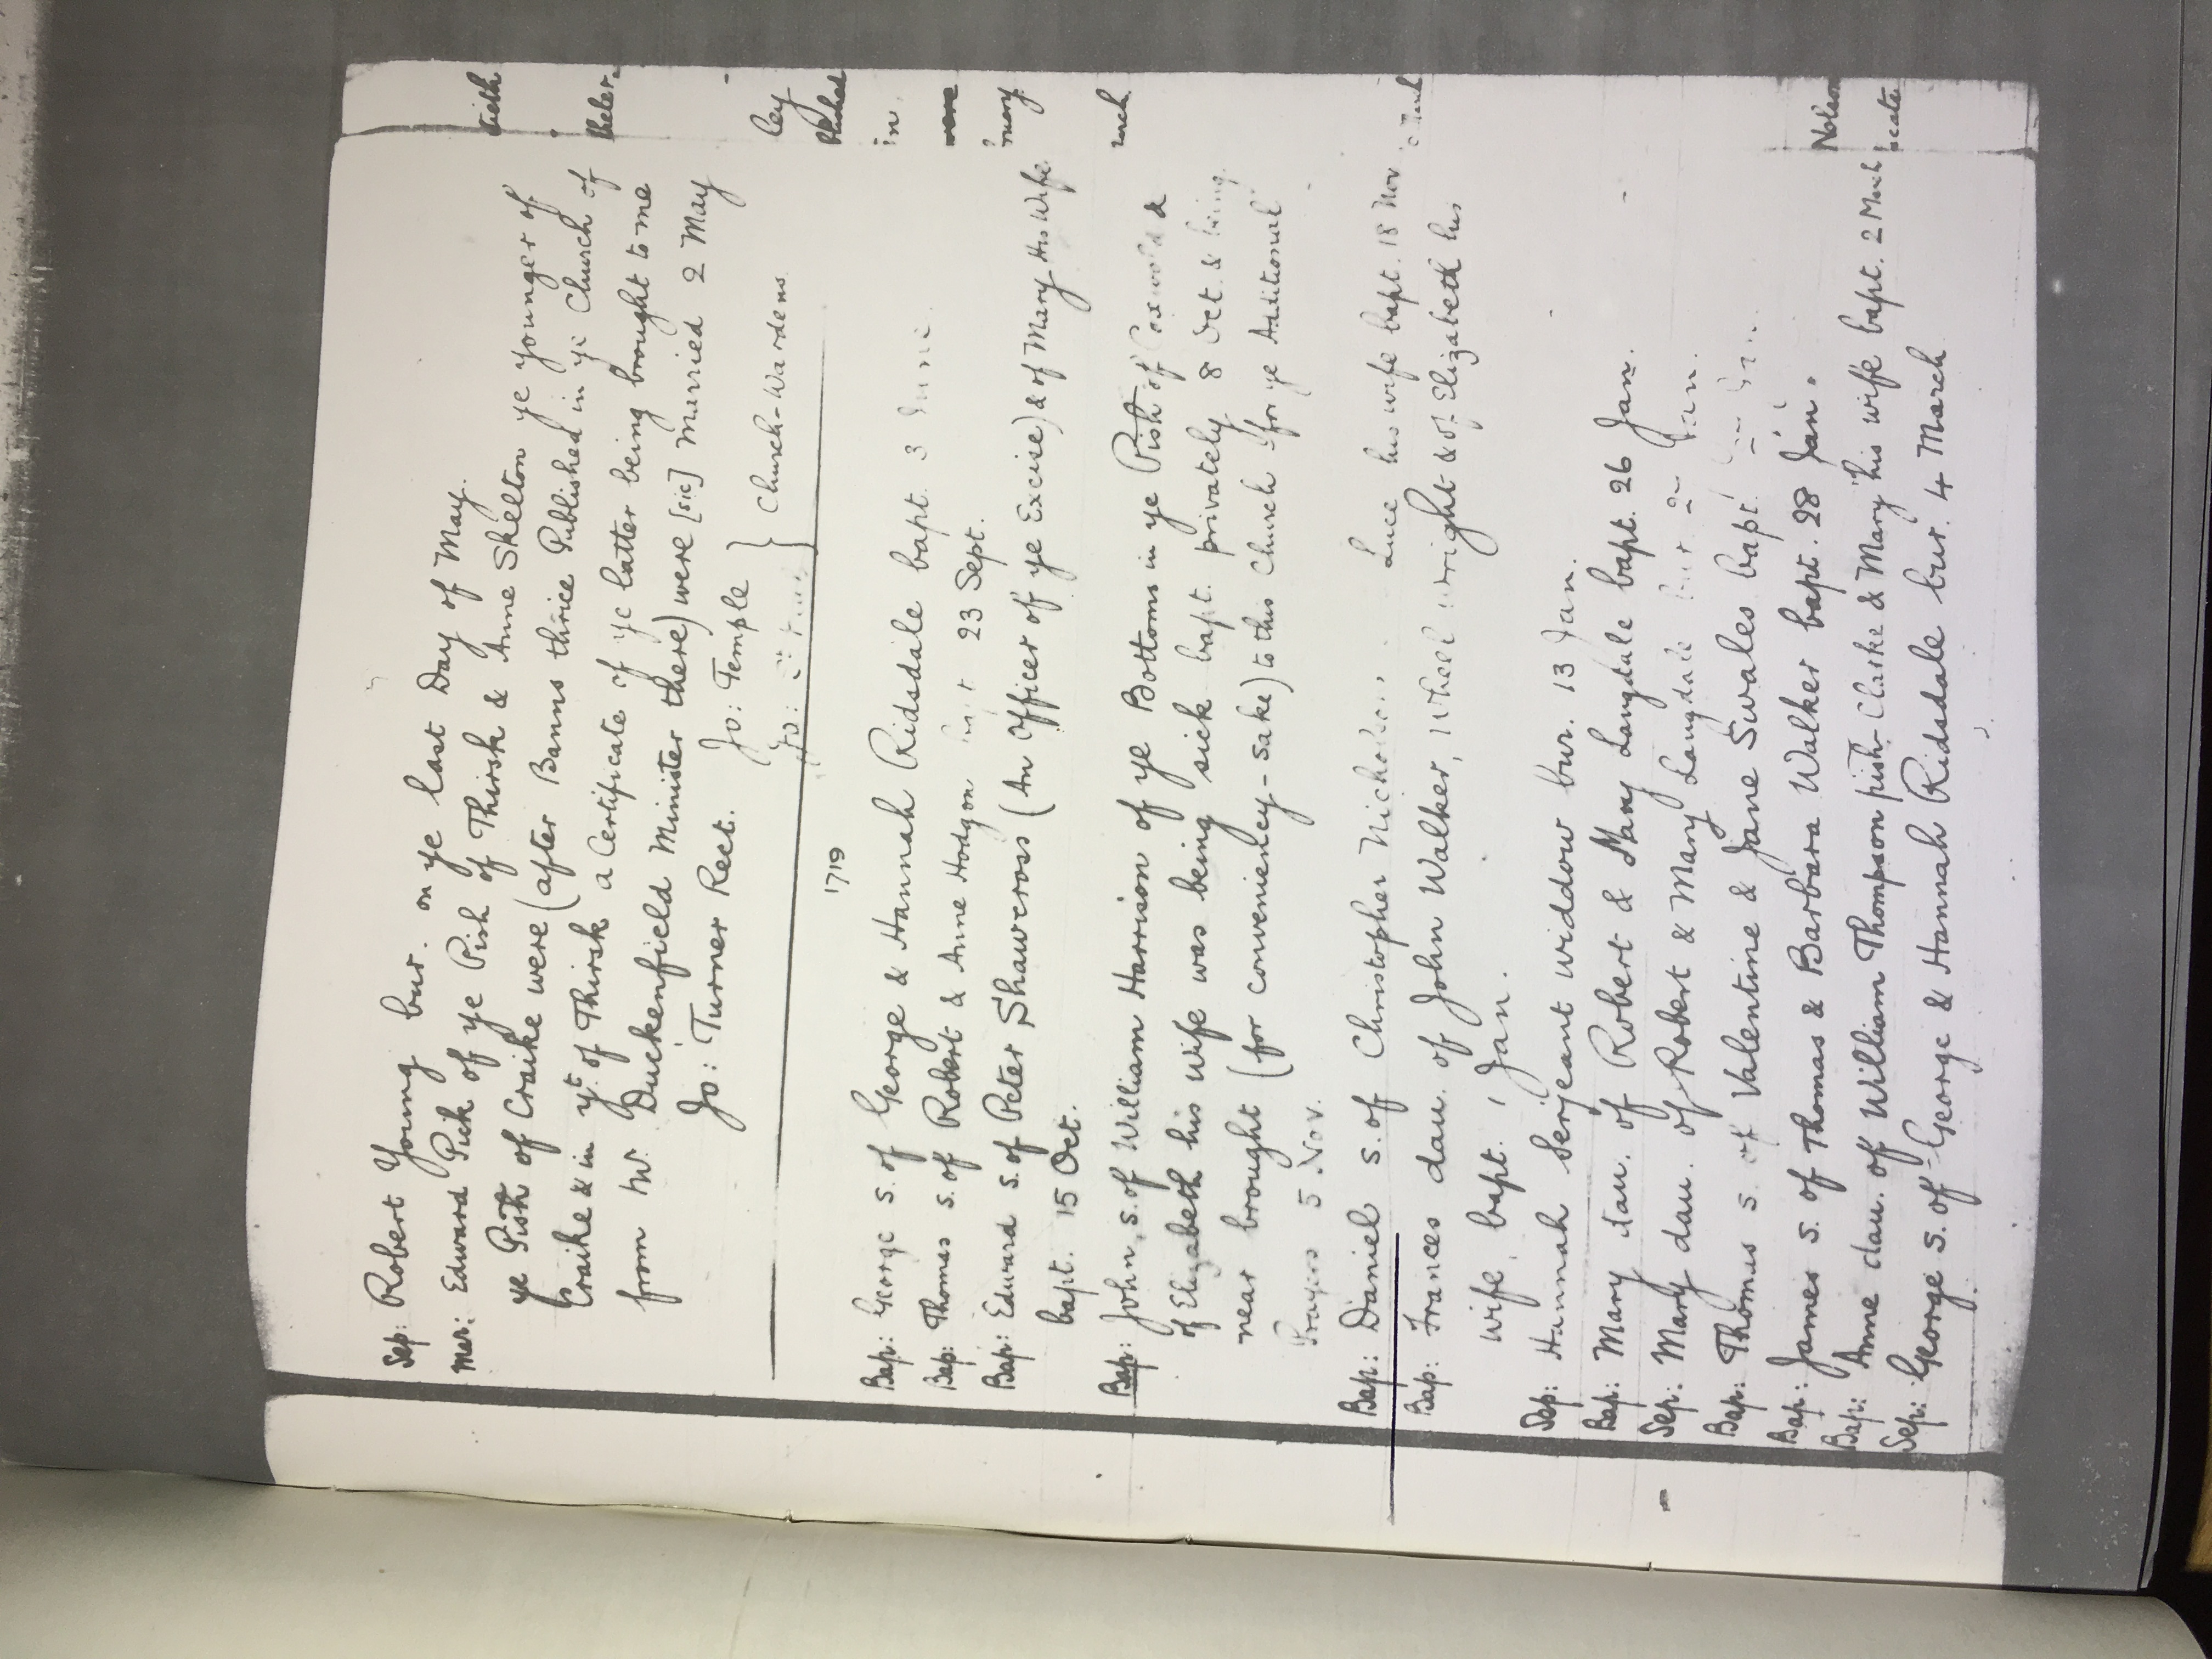 Sep: Robert Young bur. on ye last Day of May.
Mar: Edward Pick of ye Pish of Thirsk & Anne Skelton ye younger of
ye Pish of Craike were (after Banns thrice Published in ye Church of
Craike & in yt of Thirsk a Certificate of ye latter being brought to me
from Mr. Duckenfield Minister there) were [sic] Married 2 May
Jo: Turner Rect. Jo: Temple } Church-Wardens
Jo:
1719
Bap: George s. of George & Hannah Ridsdale bapt. 3 June.
Bap: Thomas s. of Robert & Anne Hodgson bapt 23 Sept.
Bap: Edward s. of Peter Shawcross (An Officer of ye Excise) & of Mary His Wife
bapt. 15 Oct.
Bap: John s. of William Harrison of ye Bottoms in ye Pish of Coxwold &
of Elizabeth his Wife was being sick bapt. privately 8 Oct. & being
near brought (for conveniency-sake) to this Church for ye Additional
Prayers 5 Nov.
Bap: Daniel s. of Christopher Nicholson Luce his wife bapt. 18 Nov
Bap: Frances dau. of John Walker, Wheelwright & of Elizabeth his
wife, bapt. 1 Jan.
Sep: Hannah Serjeant widdow bur. 13 Jan.
Bap: Mary dau. of Robert & Mary Langdale bapt. 26 Jan.
Sep: Mary dau. of Robert & Mary Langdale bur. Jan.
Bap: Thomas s. of Valentine & Jane Swales bapt.
Bap: James s. of Thomas & Barbara Walker bapt. 28 Jan.
Bap: Anne dau. of William Thompson pish-Clarke & Mary his wife bapt. 2 March
Sep: George s. of George & Hannah Ridsdale bur. 4 March
tieth
theler
ley
in
were
uary
rch
Nelson
icate